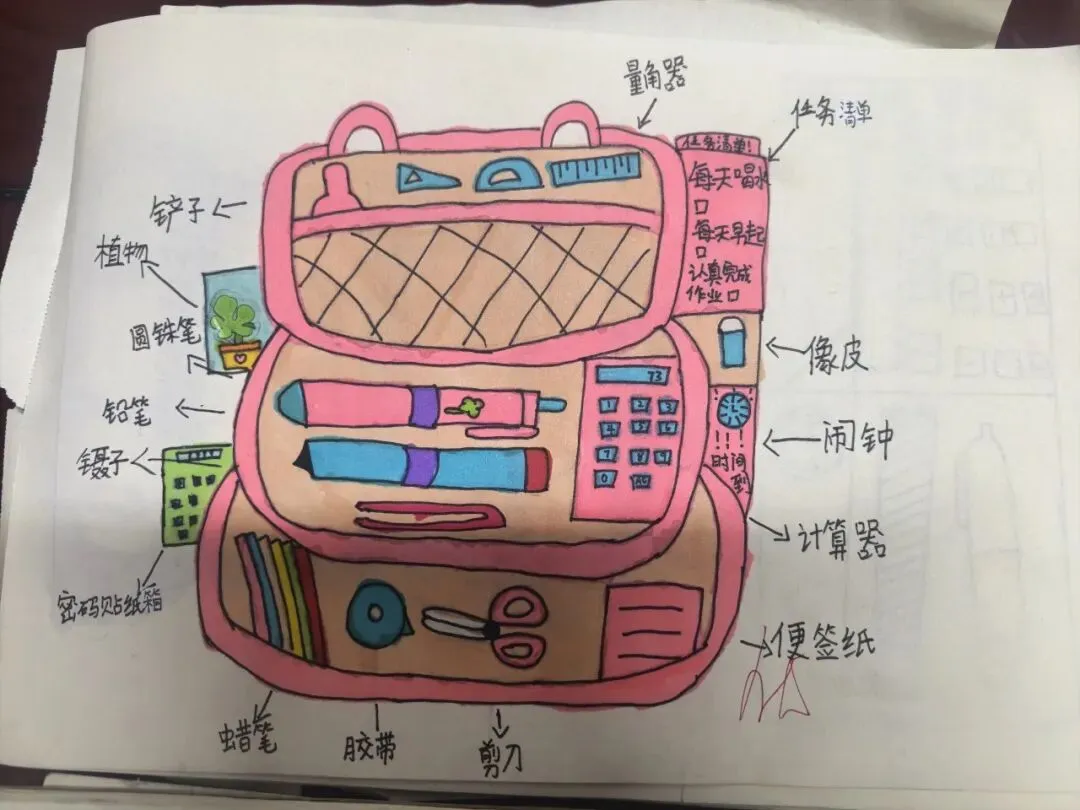 量角器
任务清单
任务清单!
每天喝水
每天早起
认真完成
作业
铲子
植物
圆铢笔
铅笔
镊子
密码贴纸箱
像皮
闹钟
!!!
时间
到
计算器
73
1 2 3
7 8 9
0
便签纸
蜡笔
胶带
剪刀